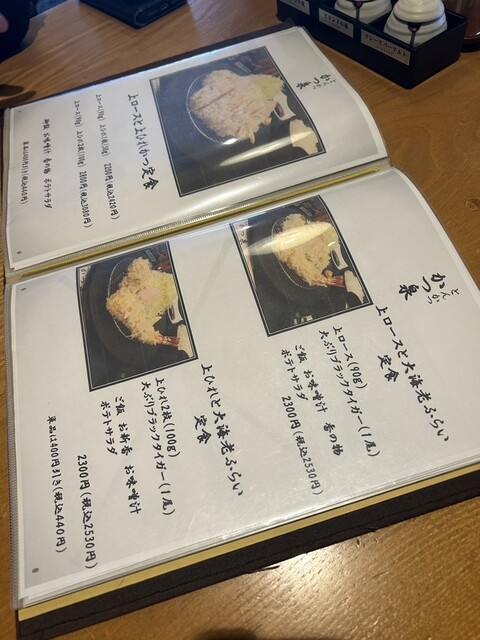 とんかつ
かつ泉
上ロースと上ひれかつ定食
上ロース(90g) 上ひれ1枚(50g) 2200円(税込2420円)
上ロース(90g) 上ひれ2枚(100g) 2800円(税込3080円)
御飯 お味噌汁 香の物 ポテトサラダ
単品は400円引き(税込440円)
とんかつ
かつ泉
上ロースと大海老ふらい
定食
上ロース(90g)
大ぶりブラックタイガー(1尾)
ご飯 お味噌汁 香の物
ポテトサラダ
2300円(税込2530円)
上ひれと大海老ふらい
定食
上ひれ2枚(100g)
大ぶりブラックタイガー(1尾)
ご飯 お新香 お味噌汁
ポテトサラダ
2300円(税込2530円)
単品は400円引き(税込440円)